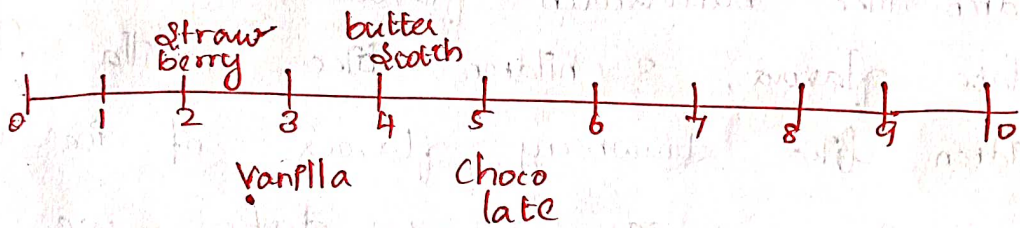 straw
berry
butter
scotch
0 1 2 3 4 5 6 7 8 9 10
Vanilla
Choco
late